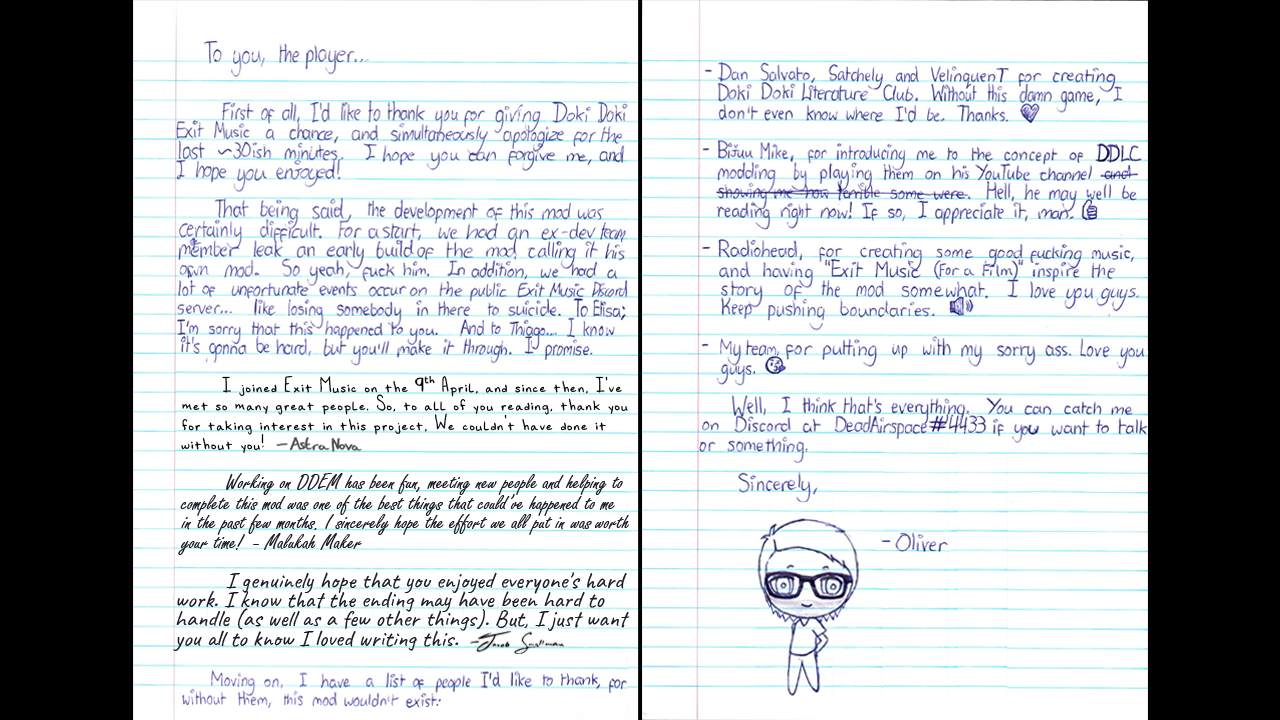 To you, the player...
First of all, I'd like to thank you for giving Doki Doki
Exit Music a chance, and simultaneously apologize for the
last ~30ish minutes. I hope you can forgive me, and
I hope you enjoyed!
That being said, the development of this mod was
certainly difficult. For a start, we had an ex-dev team
member leak an early build of the mod, calling it his
own mod. So yeah, fuck him. In addition, we had a
lot of unfortunate events occur on the public Exit Music Discord
server... like losing somebody in there to suicide. To Elisa;
I'm sorry that this happened to you. And to Thiago... I know
it's gonna be hard, but you'll make it through. I promise.
I joined Exit Music on the 9th April, and since then, I've
met so many great people. So, to all of you reading, thank you
for taking interest in this project. We couldn't have done it
without you! -Astra Nova
Working on DDEM has been fun, meeting new people and helping to
complete this mod was one of the best things that could've happened to me
in the past few months. I sincerely hope the effort we all put in was worth
your time! - Malukah Maker
I genuinely hope that you enjoyed everyone's hard
work. I know that the ending may have been hard to
handle (as well as a few other things). But, I just want
you all to know I loved writing this. -Jacob
Moving on, I have a list of people I'd like to thank, for
without them, this mod wouldn't exist:
- Dan Salvato, Satchely and VelinquenT for creating
Doki Doki Literature Club. Without this damn game, I
don't even know where I'd be. Thanks.
- Bijuu Mike, for introducing me to the concept of DDLC
modding by playing them on his YouTube channel and
showing me how terrible some were. Hell, he may well be
reading right now! If so, I appreciate it, man.
- Radiohead, for creating some good fucking music,
and having "Exit Music (For a Film)" inspire the
story of the mod somewhat. I love you guys.
Keep pushing boundaries.
- My team, for putting up with my sorry ass. Love you
guys.
Well, I think that's everything. You can catch me
on Discord at DeadAirspace#4433 if you want to talk
or something.
Sincerely,
- Oliver